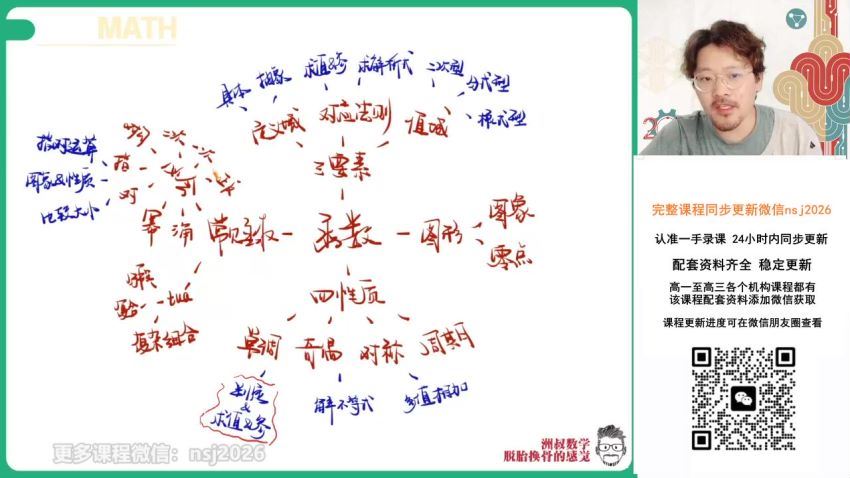 MATH
具体 抽象 求值&参 求解析式 二次型
分式型
根式型
定义域 对应法则 值域
三要素
指对运算
图象&性质
比较大小
二次
一次
指
对
幂
常见函数 - 函数 - 图形
图象
零点
四性质
复杂组合
单调 奇偶 对称 周期
判定
&
求值&参
解不等式
多值相加
洲叔数学
脱胎换骨的感觉
更多课程微信：nsj2026
完整课程同步更新微信nsj2026
认准一手录课 24小时内同步更新
配套资料齐全 稳定更新
高一至高三各个机构课程都有
该课程配套资料添加微信获取
课程更新进度可在微信朋友圈查看